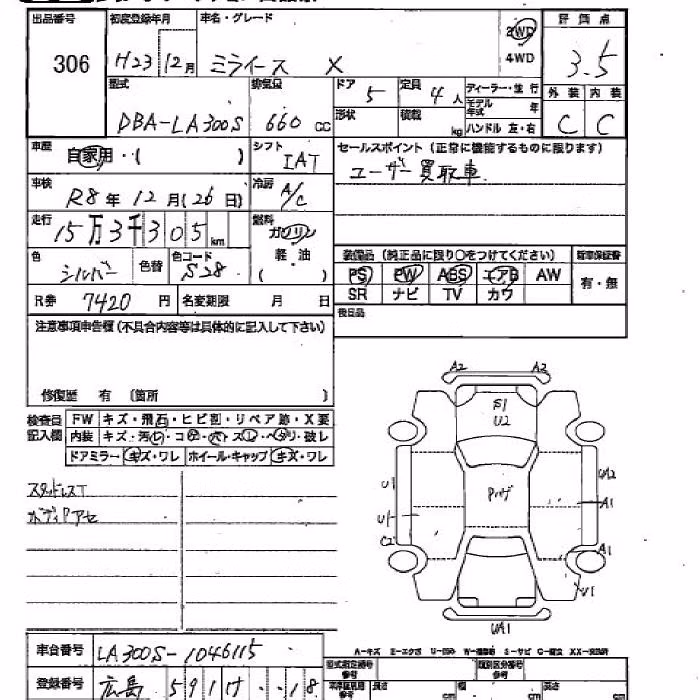 出品番号 初度登録年月 車名・グレード 評価点
306 H23 12月 ミライース X 2WD 4WD 3.5
型式 排気量 ドア 定員 ディーラー・並行 外装 内装
DBA-LA300S 660 CC 5 4人 モデル年式 年 C C
形状 積載 kg ハンドル 左・右
車歴 自家用・( ) シフト IAT セールスポイント (正常に機能するものに限ります)
ユーザー買取車
車検 R8年 12月 (26日) 冷房 A/C
走行 15万3千305km 燃料 ガソリン 軽油 ( )
色 シルバー 色替 色コード S28
装備品 (純正品に限り○をつけてください) 新車保証書
PS PW ABS エアB AW 有・無
SR ナビ TV カワ
R券 7420円 名変期限 月 日
後日品
注意事項申告欄 (不具合内容等は具体的に記入して下さい)
修復歴 有 〔箇所 〕
検査員記入欄 FW キズ・飛石・ヒビ割・リペア跡・X要
内装 キズ・汚れ・コゲ・穴・スレ・ヘタリ・破レ
ドアミラー キズ・ワレ ホイール・キャップ キズ・ワレ
スタッドレスT
ボディアセ
A2 A2
S1
U2
U1 UA2
A1
U1
C2 A1
U1
UA1
車台番号 LA300S-1046115
登録番号 広島